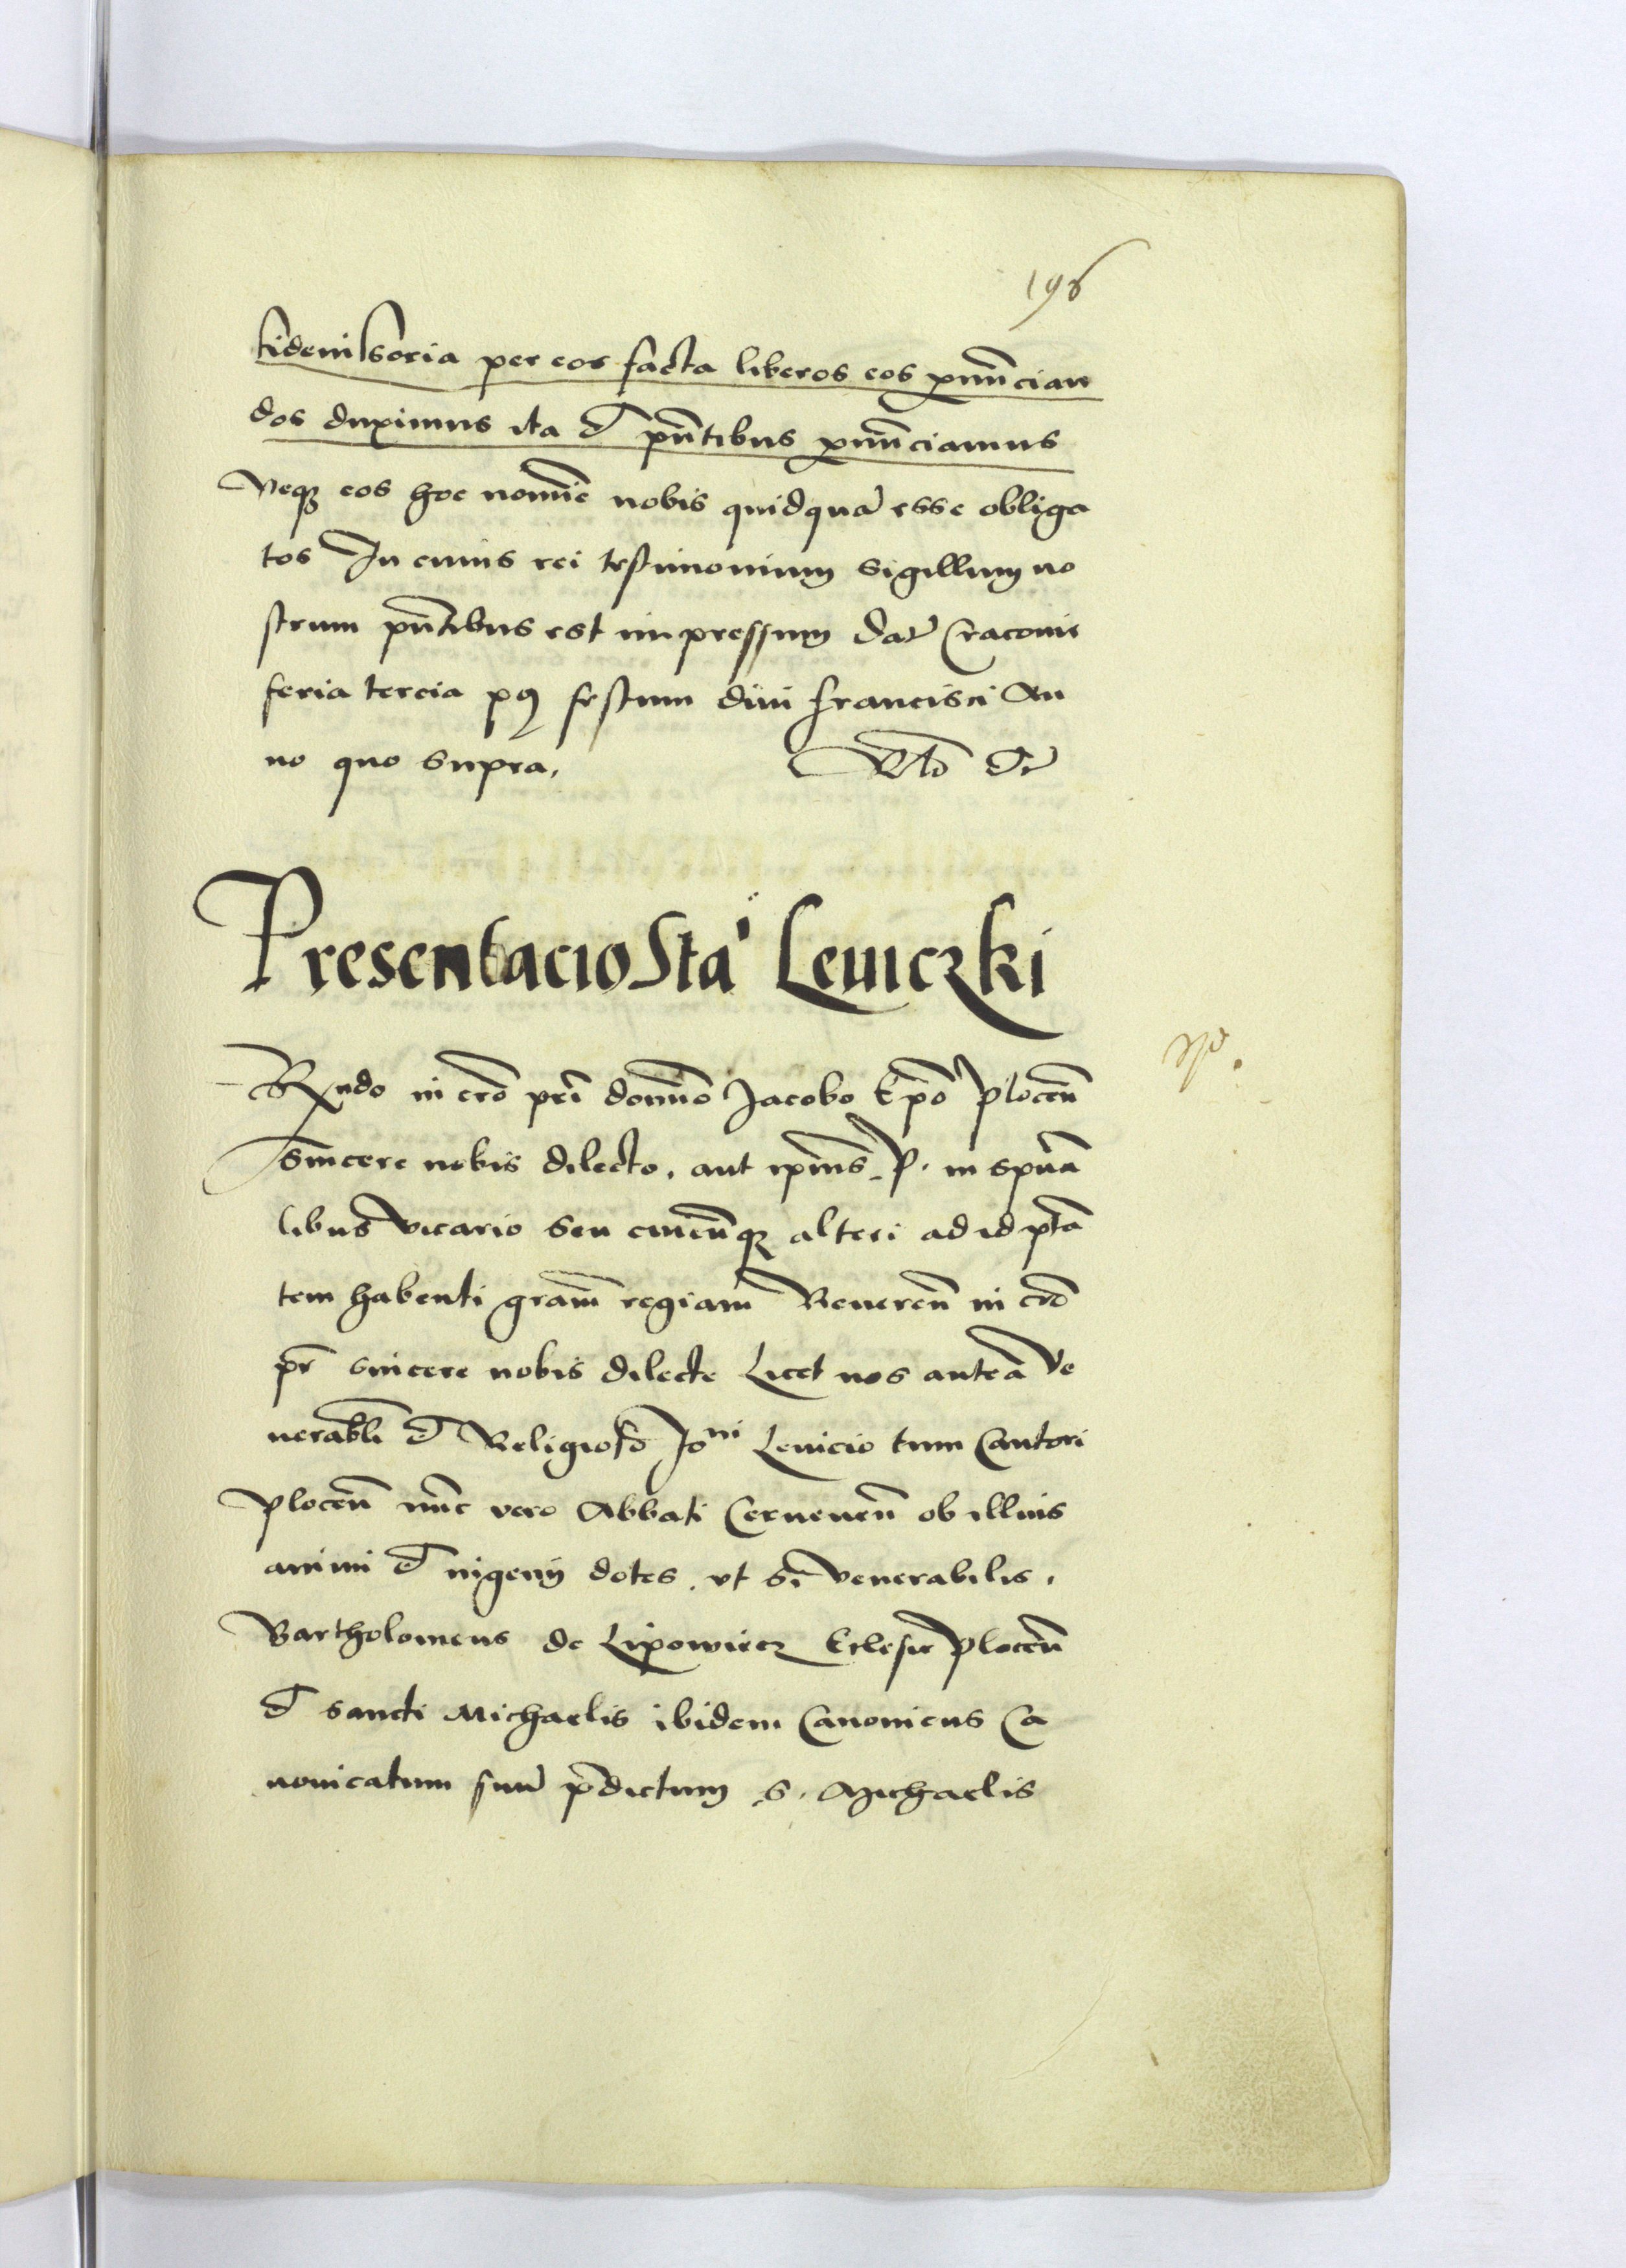 198
fideiussoria per eos facta liberos eos ꝓnũcian
dos duximus ita et pñtibus ꝓnũciamus
Neqꝫ eos hoc nomĩe nobis quidquã esse obliga
tos In cuius rei testimonium sigillum no
strum pñtibus est impressum dat̃ Cracovie
feria tercia pꝰ festum diui Francisci An
no quo supra.
Presentacio Sta Leuiczki
Rñdo in cro pri domino Jacobo Epõ Plocen̄
Sincere nobis dilecto. aut ipsius P. in spũa
libus Vicario seu cuicũqꝫ alteri ad id ptã
tem habenti gram̃ regiam Reueren̄ in cro
pr̃ sincere nobis dilecte Licet nos antea Ve
nerabli et Religioso Joni Leuicio tum Cantori
Plocen̄ nũc vero Abbati Cerwenen̄ ob illius
animi et ingenij dotes. vt si Venerabilis.
Bartholomeus de Lipowiecz Ecclesie Plocen̄
et sancti Michaelis ibidem Canonicus Ca
nonicatum suũ p̃dictum S. Michaelis